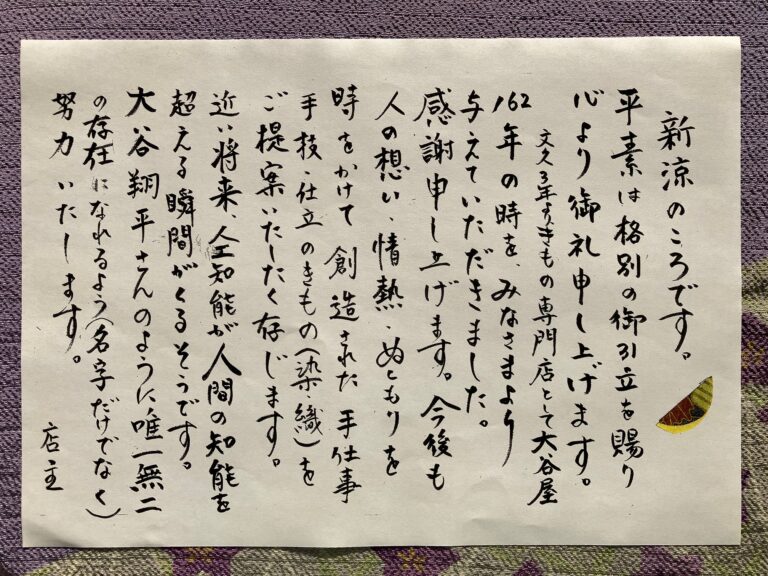 新涼のころです。
平素は格別の御引立を賜り
心より御礼申し上げます。
文久3年よりきもの専門店として大谷屋
162年の時を、みなさまより
与えていただきました。
感謝申し上げます。今後も
人の想い、情熱、ぬくもりを
時をかけて創造された手仕事
手技、仕立のきもの(染・織)を
ご提案いたしたく存じます。
近い将来、人工知能が人間の知能を
超える瞬間がくるそうです。
大谷翔平さんのように唯一無二
の存在になれるよう(名字だけでなく)
努力いたします。
店主